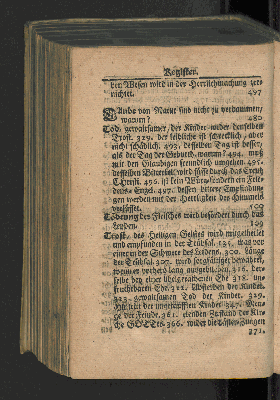 Register.
den Wesen wird in der Herrlichmachung zer-
nichtet. 497
Taube von Natur sind nicht zu verdammen,
warum? 480
Tod, gewaltsamer, der Kinder, wider denselben
Trost. 329. der leibliche ist schrecklich, aber
nicht schädlich. 493. desselben Tag ist besser,
als der Tag der Geburth, warum? 494. muß
mit den Gläubigen freundlich umgehen. 495.
desselben Bitterkeit wird süsse durch das Creutz
Christi. 496. ist kein Würg- sondern ein Frie-
dens-Engel. 497. dessen bittere Empfindun-
gen werden mit der Herrligkeit des Himmels
versüsset. 500
Tödtung des Fleisches wird befördert durch das
Leyden. 109
Trost, des Heiligen Geistes wird mitgetheilet
und empfunden in der Trübsal. 135. was vor
einer in der Schwere des Leidens. 300. Länge
der Trübsal. 307. wird sorgfältiger bewahret,
wenn er vorher lang ausgeblieben. 316. der-
selbe bey einer übelgerathenen Ehe 312. un-
fruchtbaren Ehe. 322. Absterben der Kinder.
323. gewaltsamen Tod der Kinder. 329.
der ungetaufften Kinder. 347. Men-
ge der Feinde. 361. elenden Zustand der Kir-
che GOttes. 366. wider die Läster-Zungen
371.